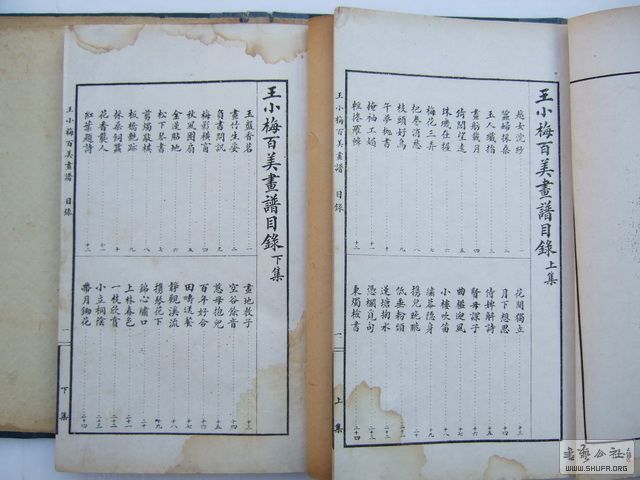 王小梅百美畫譜目錄上集
越女浣紗 一
蠶婦採桑 二
玉人織指 三
畫船載月 四
倚閣望遠 五
珠璣在握 六
梅花三弄 七
把卷消愁 八
枝頭好鳥 九
午夢
掩袖工媚 十一
輕捲羅幃 十二
花間獨立 十三
月下想思 十四
侍婢解詩 十五
賢母課子 十六
曲檻迎風 十七
小樓吹笛 十八
繡幕隱身 十九
攜兒
低垂粉頸
蓮塘掬水
憑欄覓句 二十三
東燭檢書 二十四
王小梅百美畫譜 目錄
一
上集
王小梅百美畫譜目錄下集
玉盤香茗 一
畫竹生姿 二
負書問訊 三
梅影橫窗 四
秋風團扇 五
金蓮貼地 六
松下琴書 七
剪燭敲棋 八
板橋艷跡 九
採桑飼蠶 十
花香襲人 十一
紅葉題詩 十二
畫地教子 十三
空谷餘音 十四
慈母抱兒 十五
百年好合 十六
田疇送餐 十七
靜觀溪流 十八
攜琴花下 十九
錦心繡口 二十
上林春色 二十一
一枝欣賞 二十二
小立桐陰 二十三
帶月鋤花 二十四
王小梅百美畫譜 目錄
一
下集
書藝公社
WWW.SHUFA.ORG